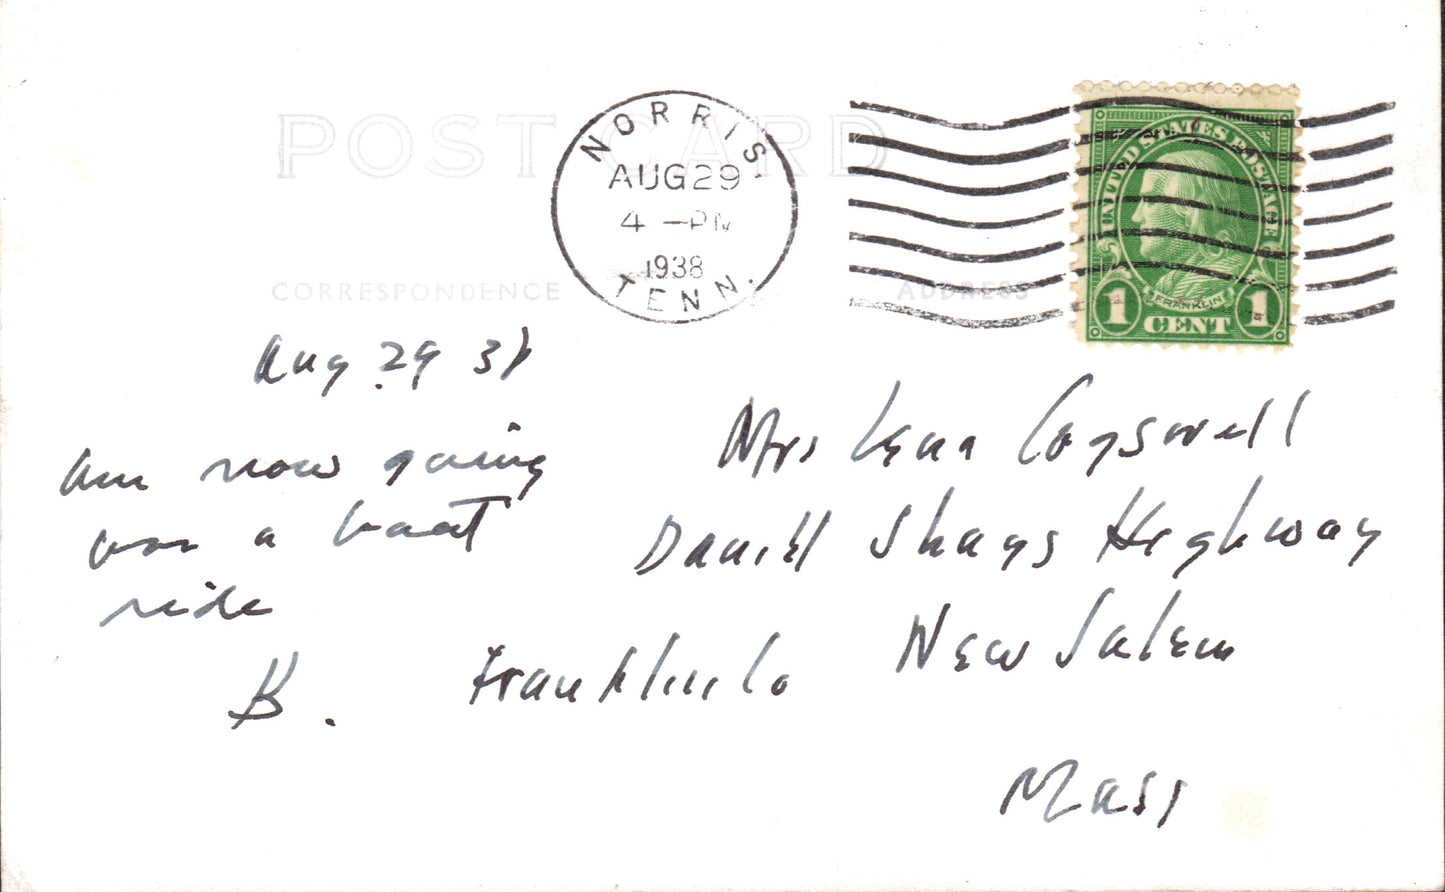 POST CARD
NORRIS.
AUG 29
4 - PM
1938
TENN.
UNITED STATES POSTAGE
FRANKLIN
1 CENT 1
CORRESPONDENCE
ADDRESS
Aug 29 38
Am now going
on a boat
ride
B.
Mrs Lena Cogswell
Daniel Shays Highway
New Salem
Franklin Co
Mass